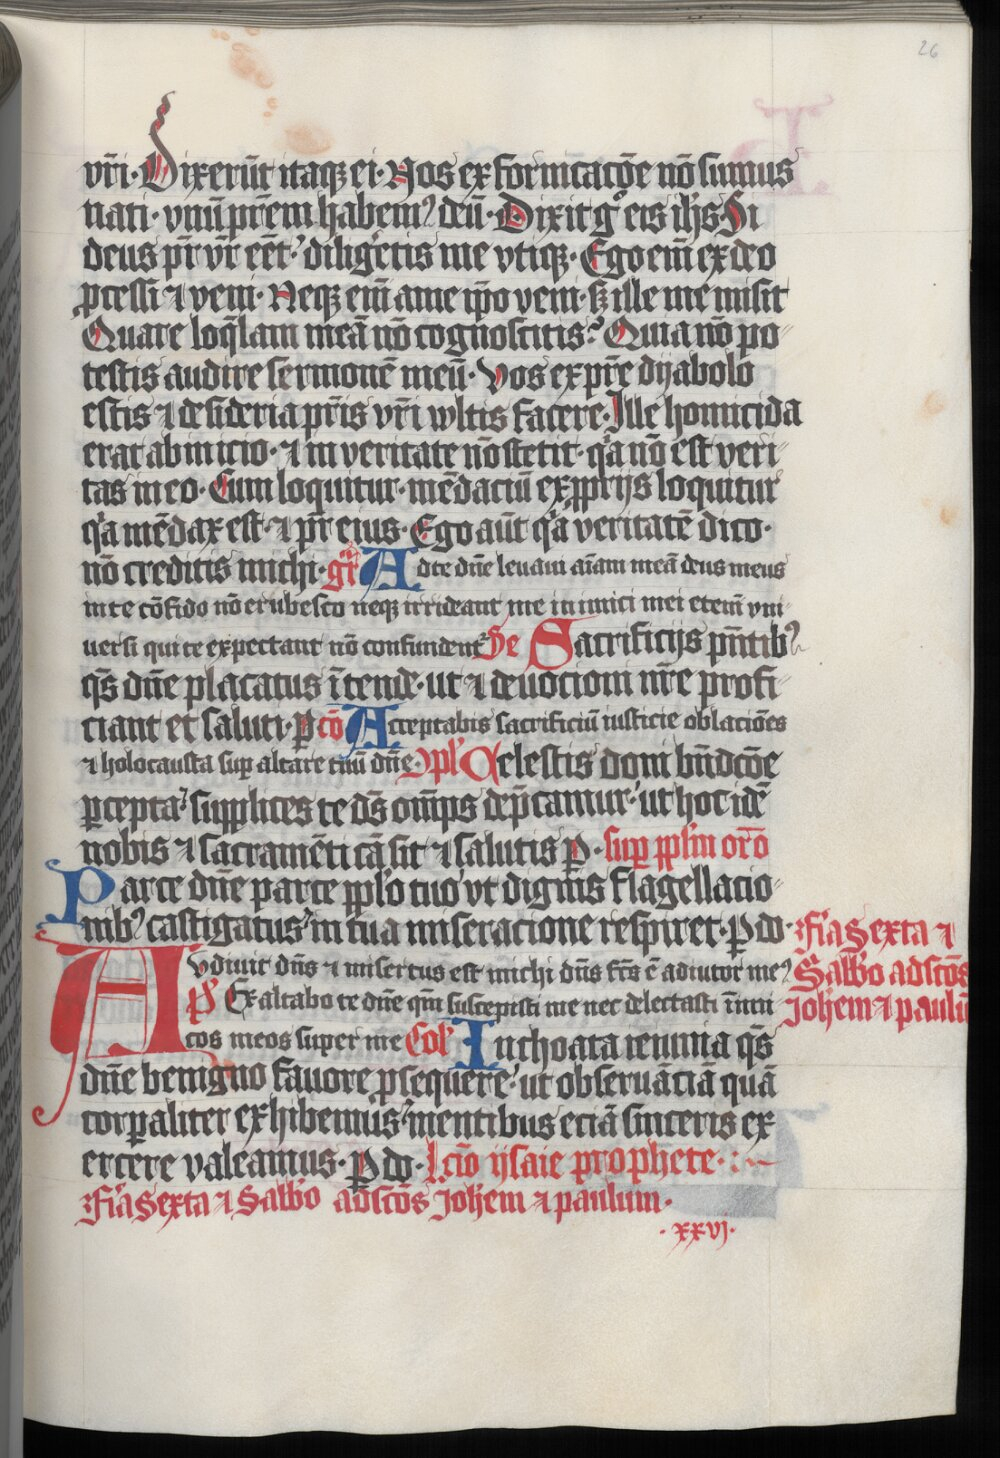 26
vr̄i· Dixerūt itaqꝫ ei· Nos ex fornicacōe nō sumus
nati· vnū pr̄em habemꝰ deū· Dixit gͦ eis ih̄s Si
deus pr̄ vr̄ eēt· diligeretis me vtiqꝫ· Ego em̄ ex deo
ꝓcessi ⁊ veni· Neqꝫ em̄ a me ip̄o veni· sꝫ ille me misit
Quare loq̄lam meā nō cognoscitis? Quia nō po⸗
testis audire sermonē meū· Vos ex pr̄e dyabolo
estis ⁊ desideria pr̄is vr̄i wltis facere· Ille homicida
erat ab inicio· ⁊ in veritate nō stetit· qͣa nō est veri⸗
tas in eo· Cum loquitur mēdaciū ex ꝓprijs loquitur
qͣa mēdax est· ⁊ pr̄ eius· Ego aūt qͣa veritatē dico·
nō creditis michi· gr̄ Ad te dn̄e leuaui aīam meā deus meus
in te cōfido nō erubesco neqꝫ irrideant me inimici mei etem̄ vni⸗
uersi qui te expectant nō confundentʳ Se Sacrificijs pn̄tibꝰ
qs̄ dn̄e placatus ītende· ut ⁊ deuocioni nr̄e profi⸗
ciant et saluti· ꝑ cō Acceptabis sacrificiū iusticie oblaciōes
⁊ holocausta suꝑ altare tuū dn̄e· ꝯpl' Celestis doni bn̄dcōe
ꝑcepta· supplices te ds̄ om̄ps dep̄camur· ut hoc idē
nobis ⁊ sacramēti cā sit ⁊ salutis ꝑ· suꝑ ppl'm orō
Parce dn̄e parce ppl'o tuo vt dignis flagellacio⸗
nibꝰ castigatus in tua miseracione respiret· ꝑ do·
Fīa Sexta ⁊
Salb'o ad scōs
Joh̄em ⁊ paulū
Avdiuit dn̄s ⁊ misertus est michi dn̄s fcs̄ ē adiutor meꝰ
pͫs Exaltabo te dn̄e qm̄ suscepisti me nec delectasti īimi
cos meos super me Col' Inchoata ieiunia qs̄
dn̄e benigno fauore ꝓsequere· ut obseruāciā quā
corꝑaliter exhibemus· mentibus eciā sinceris ex
ercere valeamus· ꝑ do· Lcīo ysaie prophete·
Fīa Sexta ⁊ Salb'o ad scōs Joh̄em ⁊ paulum·
·xxvj·